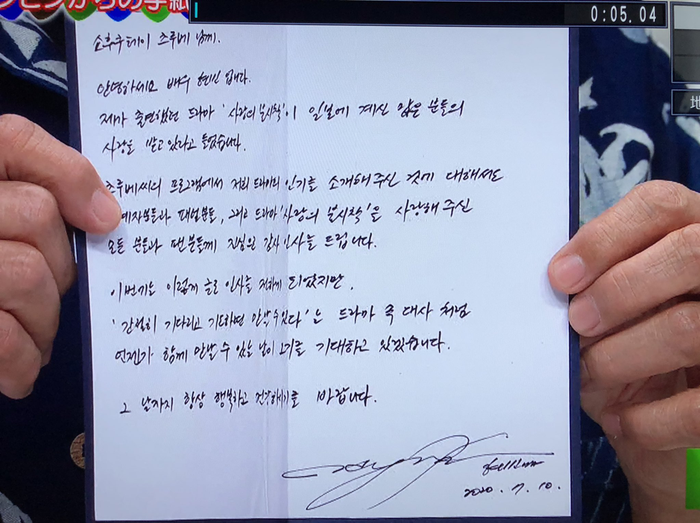 ンビンからの手紙
0:05.04
쇼후쿠테이 츠루베 님께.
안녕하세요 배우 현빈 입니다.
제가 출연했던 드라마 '사랑의 불시착'이 일본에 계신 많은 분들의
사랑을 받고 있다고 들었습니다.
츠루베씨의 프로그램에서 저희 드라마의 인기를 소개해 주신 것에 대해서도
관계자분들과 패널분들, 그리고 드라마 '사랑의 불시착'을 사랑해 주신
모든 분들과 팬분들께 진심원 감사 인사를 드립니다.
이번에는 이렇게 글로 인사를 전하게 되었지만,
'간절히 기다리고 기다하면 만날 수 있다'는 드라마 속 대사 처럼
언젠가 함께 만날 수 있는 날이 오기를 기대하고 있겠습니다.
그 날까지 항상 행복하고 건강하시기를 바랍니다.
2020. 7. 10.
地